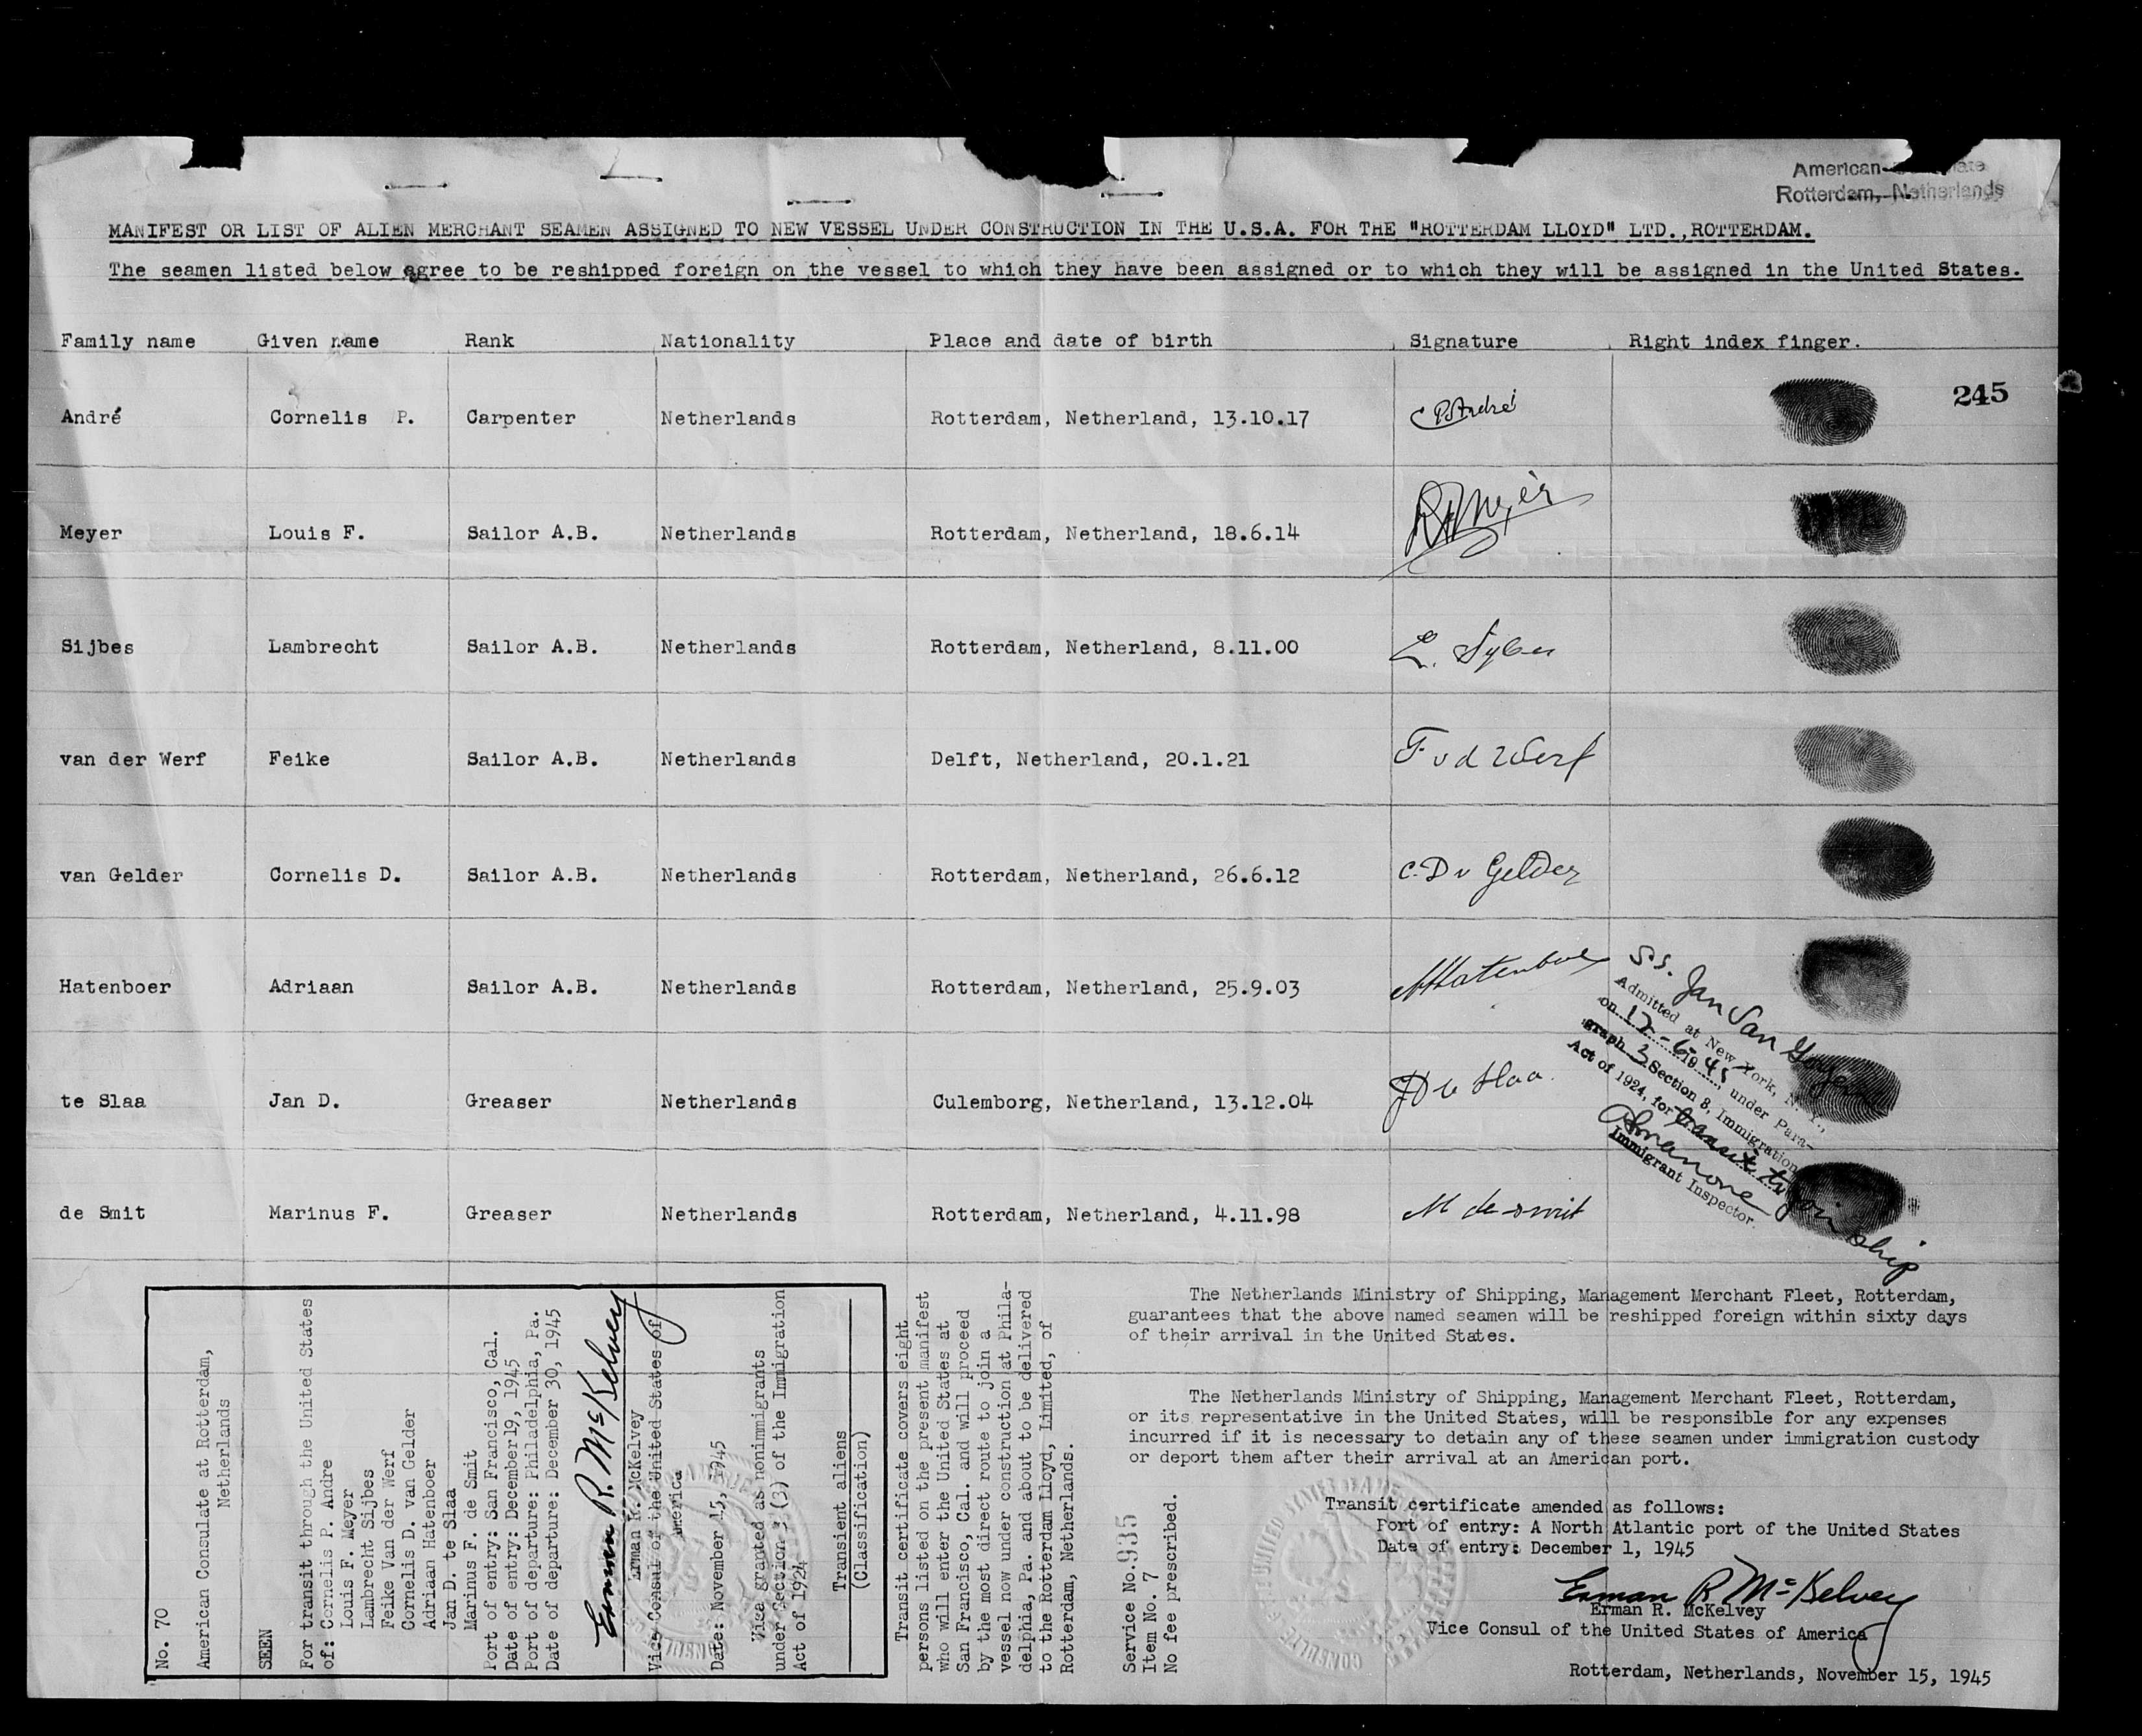 American
Rotterdam, Netherlands
MANIFEST OR LIST OF ALIEN MERCHANT SEAMEN ASSIGNED TO NEW VESSEL UNDER CONSTRUCTION IN THE U.S.A. FOR THE "ROTTERDAM LLOYD" LTD.,ROTTERDAM.
The seamen listed below agree to be reshipped foreign on the vessel to which they have been assigned or to which they will be assigned in the United States.
Family name Given name Rank Nationality Place and date of birth Signature Right index finger.
245
André Cornelis P. Carpenter Netherlands Rotterdam, Netherland, 13.10.17 C P André
Meyer Louis F. Sailor A.B. Netherlands Rotterdam, Netherland, 18.6.14
Sijbes Lambrecht Sailor A.B. Netherlands Rotterdam, Netherland, 8.11.00 L. Sybes
van der Werf Feike Sailor A.B. Netherlands Delft, Netherland, 20.1.21 F v d Werf
van Gelder Cornelis D. Sailor A.B. Netherlands Rotterdam, Netherland, 26.6.12 C. D v Gelder
Hatenboer Adriaan Sailor A.B. Netherlands Rotterdam, Netherland, 25.9.03 A Hatenboer
te Slaa Jan D. Greaser Netherlands Culemborg, Netherland, 13.12.04 JD te Slaa
de Smit Marinus F. Greaser Netherlands Rotterdam, Netherland, 4.11.98 M de Smit
S.S. Jan Van Goyen
Admitted at New York, N. Y.,
on 12-6-1945, under Para-
graph 3 Section 3, Immigration
Act of 1924, for transit to join ship
Immigrant Inspector.
No. 70
American Consulate at Rotterdam,
Netherlands
SEEN
For transit through the United States
of: Cornelis P. Andre
Louis F. Meyer
Lambrecht Sijbes
Feike Van der Werf
Cornelis D. van Gelder
Adriaan Hatenboer
Jan D. te Slaa
Marinus F. de Smit
Port of entry: San Francisco, Cal.
Date of entry: December19, 1945
Port of departure: Philadelphia, Pa.
Date of departure: December 30, 1945
Erman R. McKelvey
Erman R. McKelvey
Vice Consul of the United States of
America
Date: November 15, 1945
Visa granted as nonimmigrants
under Section 3 (3) of the Immigration
Act of 1924
Transient aliens
(Classification)
Transit certificate covers eight
persons listed on the present manifest
who will enter the United States at
San Francisco, Cal. and will proceed
by the most direct route to join a
vessel now under construction at Phila-
delphia, Pa. and about to be delivered
to the Rotterdam Lloyd, Limited, of
Rotterdam, Netherlands.
Service No.935
Item No. 7
No fee prescribed.
The Netherlands Ministry of Shipping, Management Merchant Fleet, Rotterdam,
guarantees that the above named seamen will be reshipped foreign within sixty days
of their arrival in the United States.
The Netherlands Ministry of Shipping, Management Merchant Fleet, Rotterdam,
or its representative in the United States, will be responsible for any expenses
incurred if it is necessary to detain any of these seamen under immigration custody
or deport them after their arrival at an American port.
Transit certificate amended as follows:
Port of entry: A North Atlantic port of the United States
Date of entry: December 1, 1945
Erman R McKelvey
Erman R. McKelvey
Vice Consul of the United States of America
Rotterdam, Netherlands, November 15, 1945